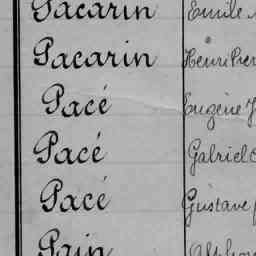 Pacarin Emile
Pacarin Henri
Pacé Eugène
Pacé Gabriel
Pacé Gustave
Pain